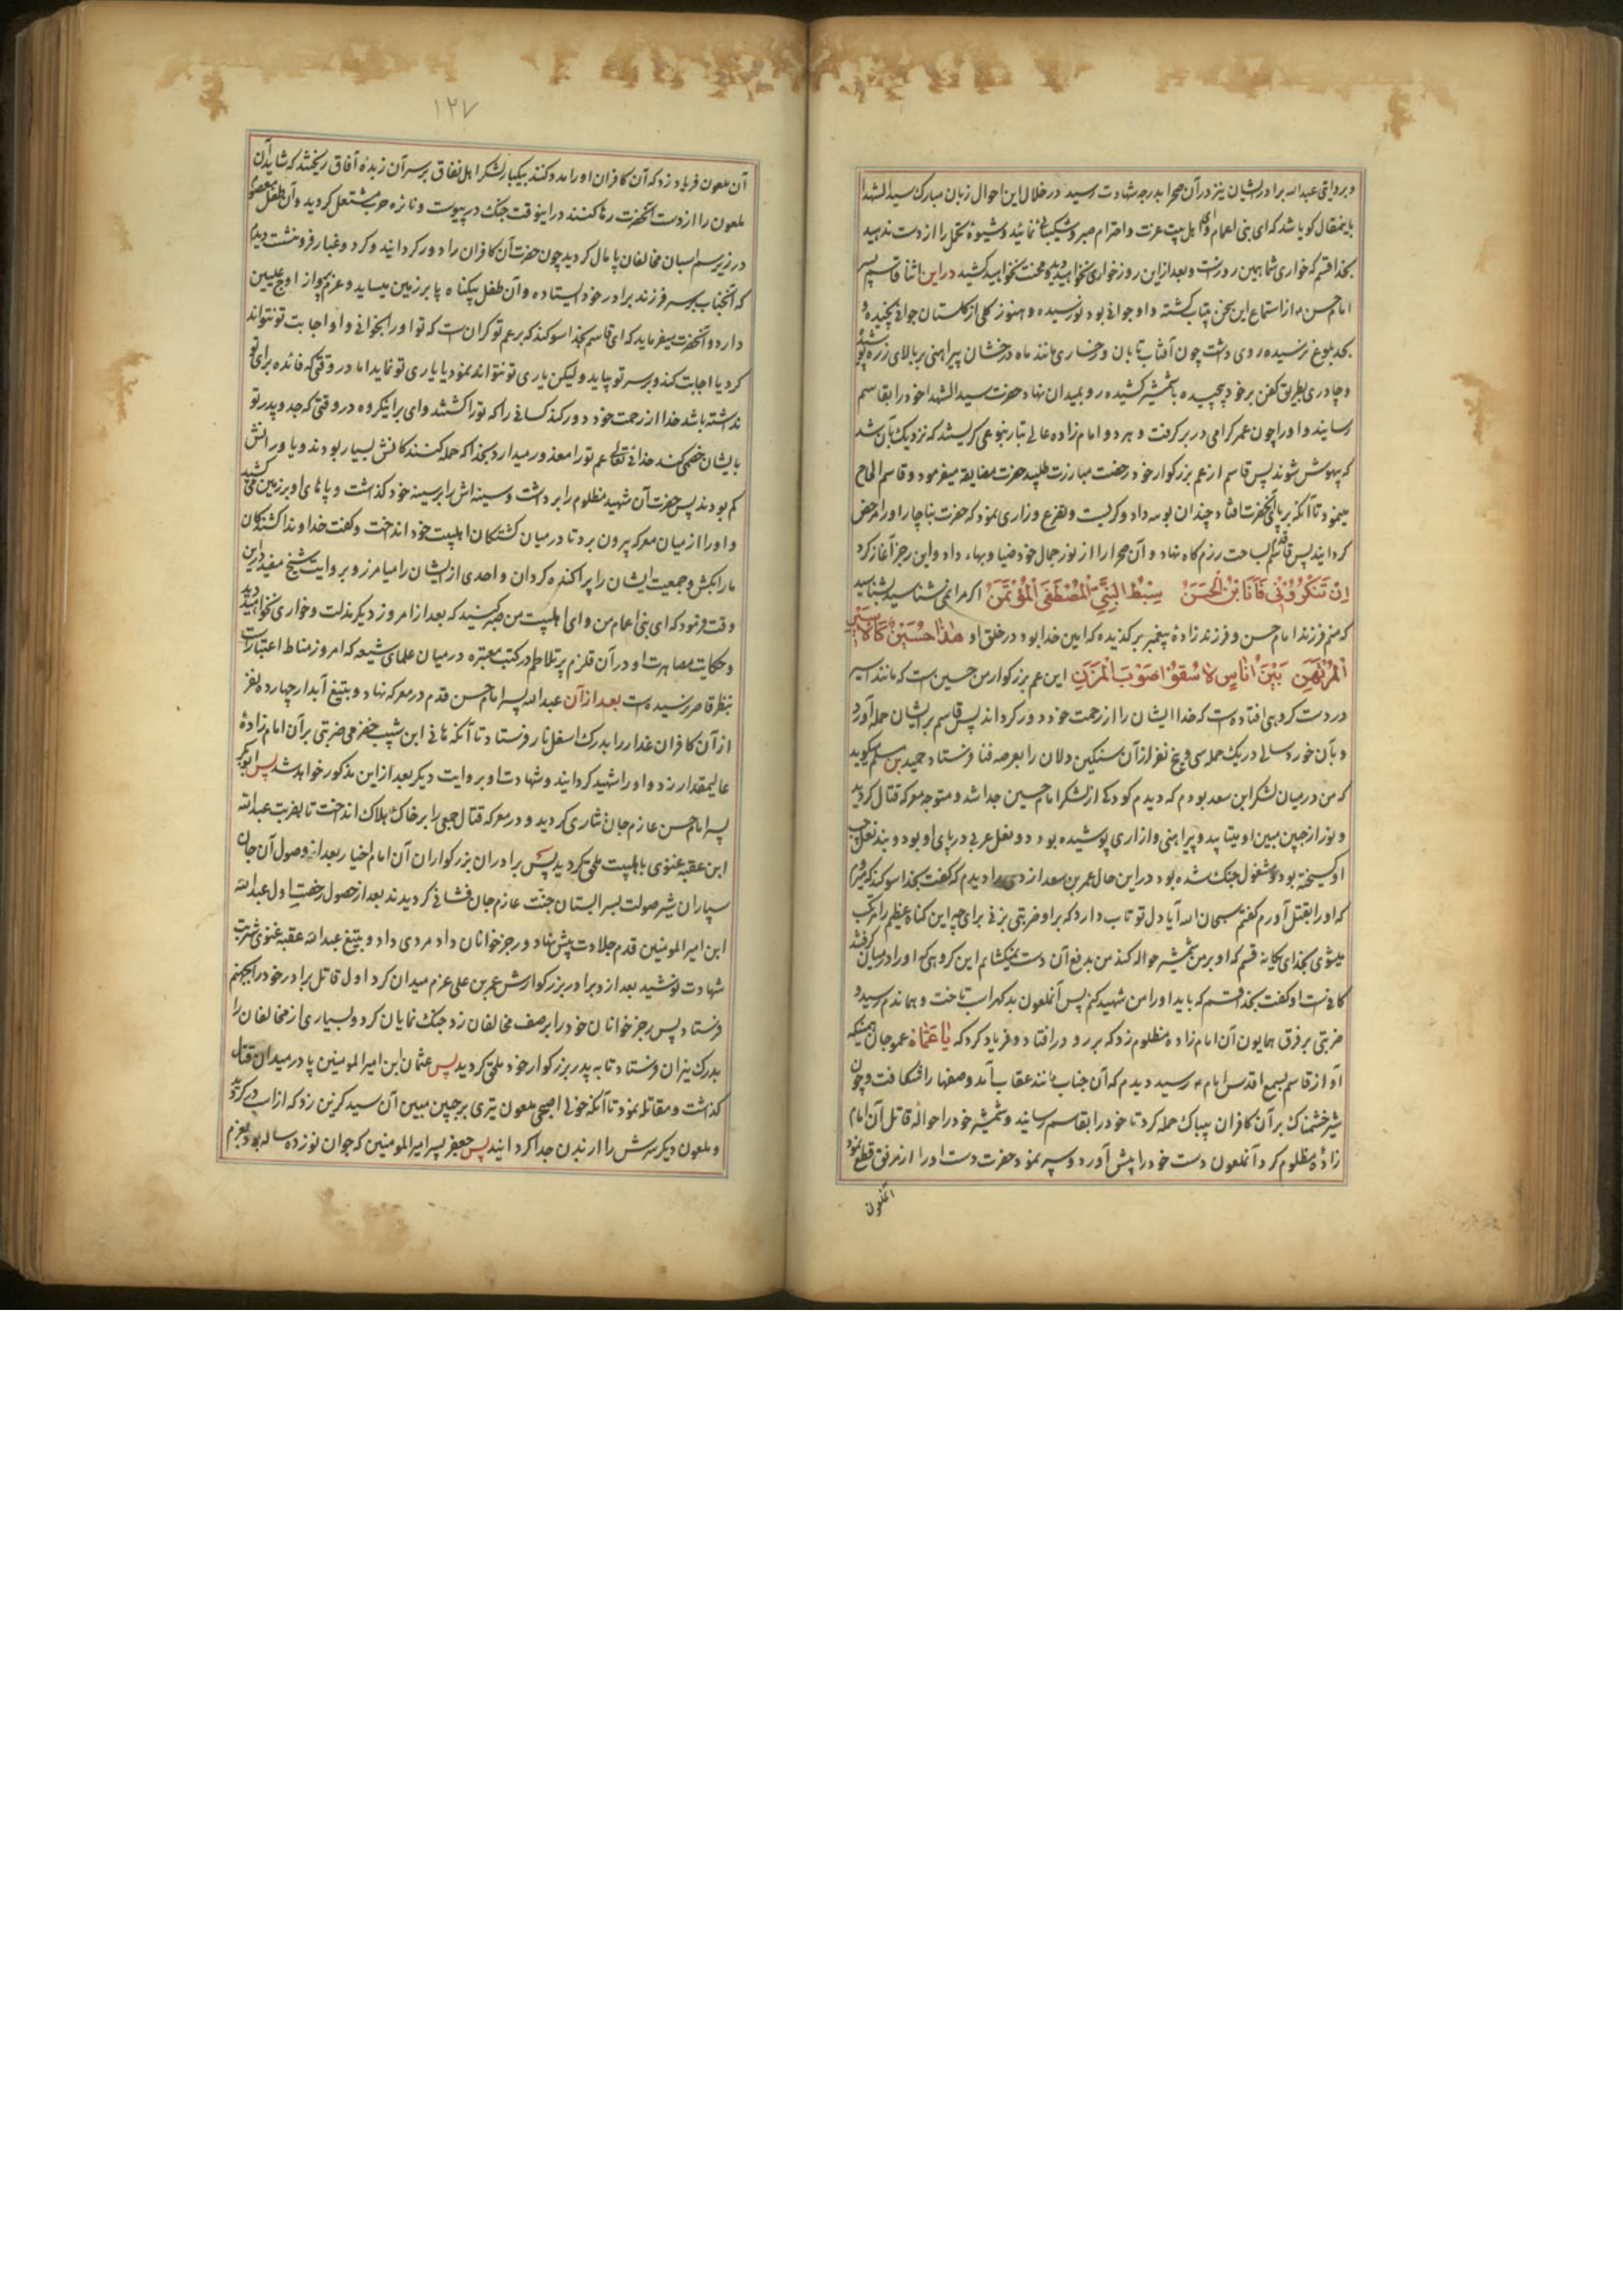 وبروایتی عبدالله برادر ایشان نیز در آن صحرا بدرجه شهادت رسید در خلال این احوال زبان مبارک سید الشهدا
باینمقال کویا شد که ای بنی اعمام وای اهل بیت عزت و احترام صبر و شکیبائی نمائید وشیوهٔ تحمل را از دست ندهید
بخدا قسم که خواری شما بهمین روز است و بعد ازین روز خواری نخواهید دید و محنت نخواهید کشید در این اثنا قاسم پسر
امام حسن از استماع این سخن بیتاب کشته و او جوانی بود نورسیده و هنوز کلی از کلستان جوانی نچیده و
بحد بلوغ نرسیده روی داشت چون آفتاب تابان و رخساری مانند ماه درخشان پیراهنی بر بالای زره پوشید
و چادری بطریق کفن بر خود پیچیده با شمشیر کشیده رو بمیدان نهاد حضرت سید الشهدا خود را بقاسم
رسانید و او را چون عمر کرامی در بر کرفت و هر دو امام زاده عالی تبار بنوعی کریستند که نزدیک بآن شد
که بیهوش شوند پس قاسم از عم بزرکوار خود رخصت مبارزت طلبید حضرت مضایقه میفرمود و قاسم الحاح
مینمود تا آنکه بر پای آنحضرت افتاد و چندان بوسه داد و کریست و جزع و زاری نمود که حضرت بناچار او را مرخص
کردانید پس قاسم قدم بساحت رزمکاه نهاد و آن صحرا را از نور جمال خود ضیا و بهاء داد و این رجز آغاز کرد
اِنْ تَنْکُرُوُنی فَاَنَا بْنُ الْحَسَنْ سِبْطُ النَّبِیِّ الْمُصْطَفَی الْمُؤْتَمَنْ اکر مرا نمی شناسید بشناسید
که منم فرزند امام حسن و فرزندزادهٔ پیغمبر برکزیده که امین خدا بود در خلق او هٰذٰا حُسَیْنٌ کَالْاَسیٖرِ
الْمُرْتَهَنِ بَیْنَ اُنٰاسٍ لٰا سُقوُا صَوْبَ الْمَزَنِ این عم بزرکوار من حسین است که مانند اسیر
در دست کروهی افتاده است که خدا ایشان را از رحمت خود دور کرداند پس قاسم بر ایشان حمله آورد
و بآن خورد سالی در یک حمله سی و پنج نفر از آن سنکین دلان را بعرصه فنا فرستاد حمید بن مسلم کوید
که من در میان لشکر ابن سعد بودم که دیدم کودکی از لشکر امام حسین جدا شد و متوجه معرکه قتال کردید
و نور از جبین مبین او میتابید و پیراهنی و ازاری پوشیده بود و دو نعل عربی در پای او بود و بند نعل چپ
او کسیخته بود و مشغول جنک شده بود در این حال عمر بن سعد ازدی را دیدم که کفت بخدا سوکند که میروم
که او را بقتل آورم کفتم سبحان الله آیا دل تو تاب دارد که بر او ضربتی بزنی برای چه این کناه عظیم را مرتکب
میشوی بخدای یکانه قسم که او بر من شمشیر حواله کند من بدفع آن دست نمیکشایم این کروهی که او را در میان کرفته‌اند
کافی است او کفت بخدا قسم که باید او را من شهید کنم پس آنملعون بدکهر اسب تاخت و هماندم رسید و
ضربتی بر فرق همایون آن امام زادهٔ مظلوم زد که بر رو در افتاد و فریاد کرد که یٰا عَمّٰاهُ عمو جان همینکه
آواز قاسم بسمع اقدس امام رسید دیدم که آن جناب مانند عقاب آمد و صفها را شکافت و چون
شیر خشمناک بر آن کافران بیباک حمله کرد تا خود را بقاسم رسانید و شمشیر خود را حوالهٔ قاتل آن امام
زادهٔ مظلوم کرد آنملعون دست خود را پیش آورد و سپر نمود حضرت دست او را از مرفق قطع نمود
آنملعون
۱۲۷
آن ملعون فریاد زد که آن کافران او را مدد کنند بیکبار لشکر اهل نفاق بر سر آن زبدهٔ آفاق ریختند که شاید آن
ملعون را از دست آنحضرت رها کنند در اینوقت جنک در پیوست و نائره حرب مشتعل کردید و آن طفل معصوم
در زیر سم اسبان مخالفان پامال کردید چون حضرت آن کافران را دور کردانید و کرد و غبار فرو نشست دیدم
که آنجناب بر سر فرزند برادر خود ایستاده و آن طفل بیکناه پا بر زمین میساید و عزم پرواز اوج علیین
دارد و آنحضرت میفرماید که ای قاسم بخدا سوکند که بر عم تو کران است که تو او را بخوانی و او اجابت تو نتواند
کرد یا اجابت کند و بر سر تو بیاید ولیکن یاری تو نتواند نمود یا یاری تو نماید اما در وقتی که فائده برای تو
نداشته باشد خدا از رحمت خود دور کند کسانی را که تو را کشتند وای بر اینکروه در وقتی که جد و پدر تو
بایشان خصمی کند خدای تعالی عم تو را معذور میدارد بخدا که حمله کنندکانش بسیار بودند و یاورانش
کم بودند پس حضرت آن شهید مظلوم را برداشت و سینه اش را بر سینه خود کذاشت و پاهای او بر زمین می کشید
و او را از میان معرکه بیرون برد تا در میان کشتکان اهلبیت خود انداخت و کفت خداوندا کشندکان
ما را بکش و جمعیت ایشان را پراکنده کردان و احدی از ایشان را میامرز و بروایت شیخ مفید در این
وقت فرمود که ای بنی اعمام من و ای اهلبیت من صبر کنید که بعد از امروز دیکر مذلت و خواری نخواهید دید
و حکایت مصاهرت او در آن قلزم پر تلاطم در کتب معتبره در میان علمای شیعه که امروز مناط اعتبار است
بنظر قاصر نرسیده است بعد از آن عبدالله پسر امام حسن قدم در معرکه نهاد و بتیغ آبدار چهارده نفر
از آن کافران غدار را بدرک اسفل نار فرستاد تا آنکه هانی ابن شبیب حضرمی ضربتی بر آن امام زادهٔ
عالیمقدار زد و او را شهید کردانید و شهادت او بروایت دیکر بعد از این مذکور خواهد شد پس ابوبکر
پسر امام حسن عازم جان نثاری کردید و در معرکه قتال جمعی را بر خاک هلاک انداخت تا بضربت عبدالله
ابن عقبه غنوی باهلبیت ملحق کردید پس برادران بزرکواران آن امام اخیار بعد از وصول آن جان
سپاران شیر صولت بسرابستان جنت عازم جان فشانی کردیدند بعد از حصول رخصت اول عبدالله
ابن امیر المومنین قدم جلادت پیش نهاد و رجز خوانان داد مردی داد و بتیغ عبدالله عقبه غنوی شربت
شهادت نوشید بعد از او برادر بزرکوارش عمر بن علی عزم میدان کرد اول قاتل برادر خود را بجهنم
فرستاد پس رجز خوانان خود را بر صف مخالفان زد جنک نمایان کرد و بسیاری از مخالفان را
بدرک نیران فرستاد تا به پدر بزرکوار خود ملحق کردید پس عثمان ابن امیر المومنین پا در میدان قتال
کذاشت و مقاتله نمود تا آنکه خولی اصبحی ملعون تیری بر جبین مبین آن سید کزین زد که از اسب در کردید
و ملعون دیکر سرش را از بدن جدا کردانید پس جعفر پسر امیر المومنین که جوان نوزده ساله بود بعزم